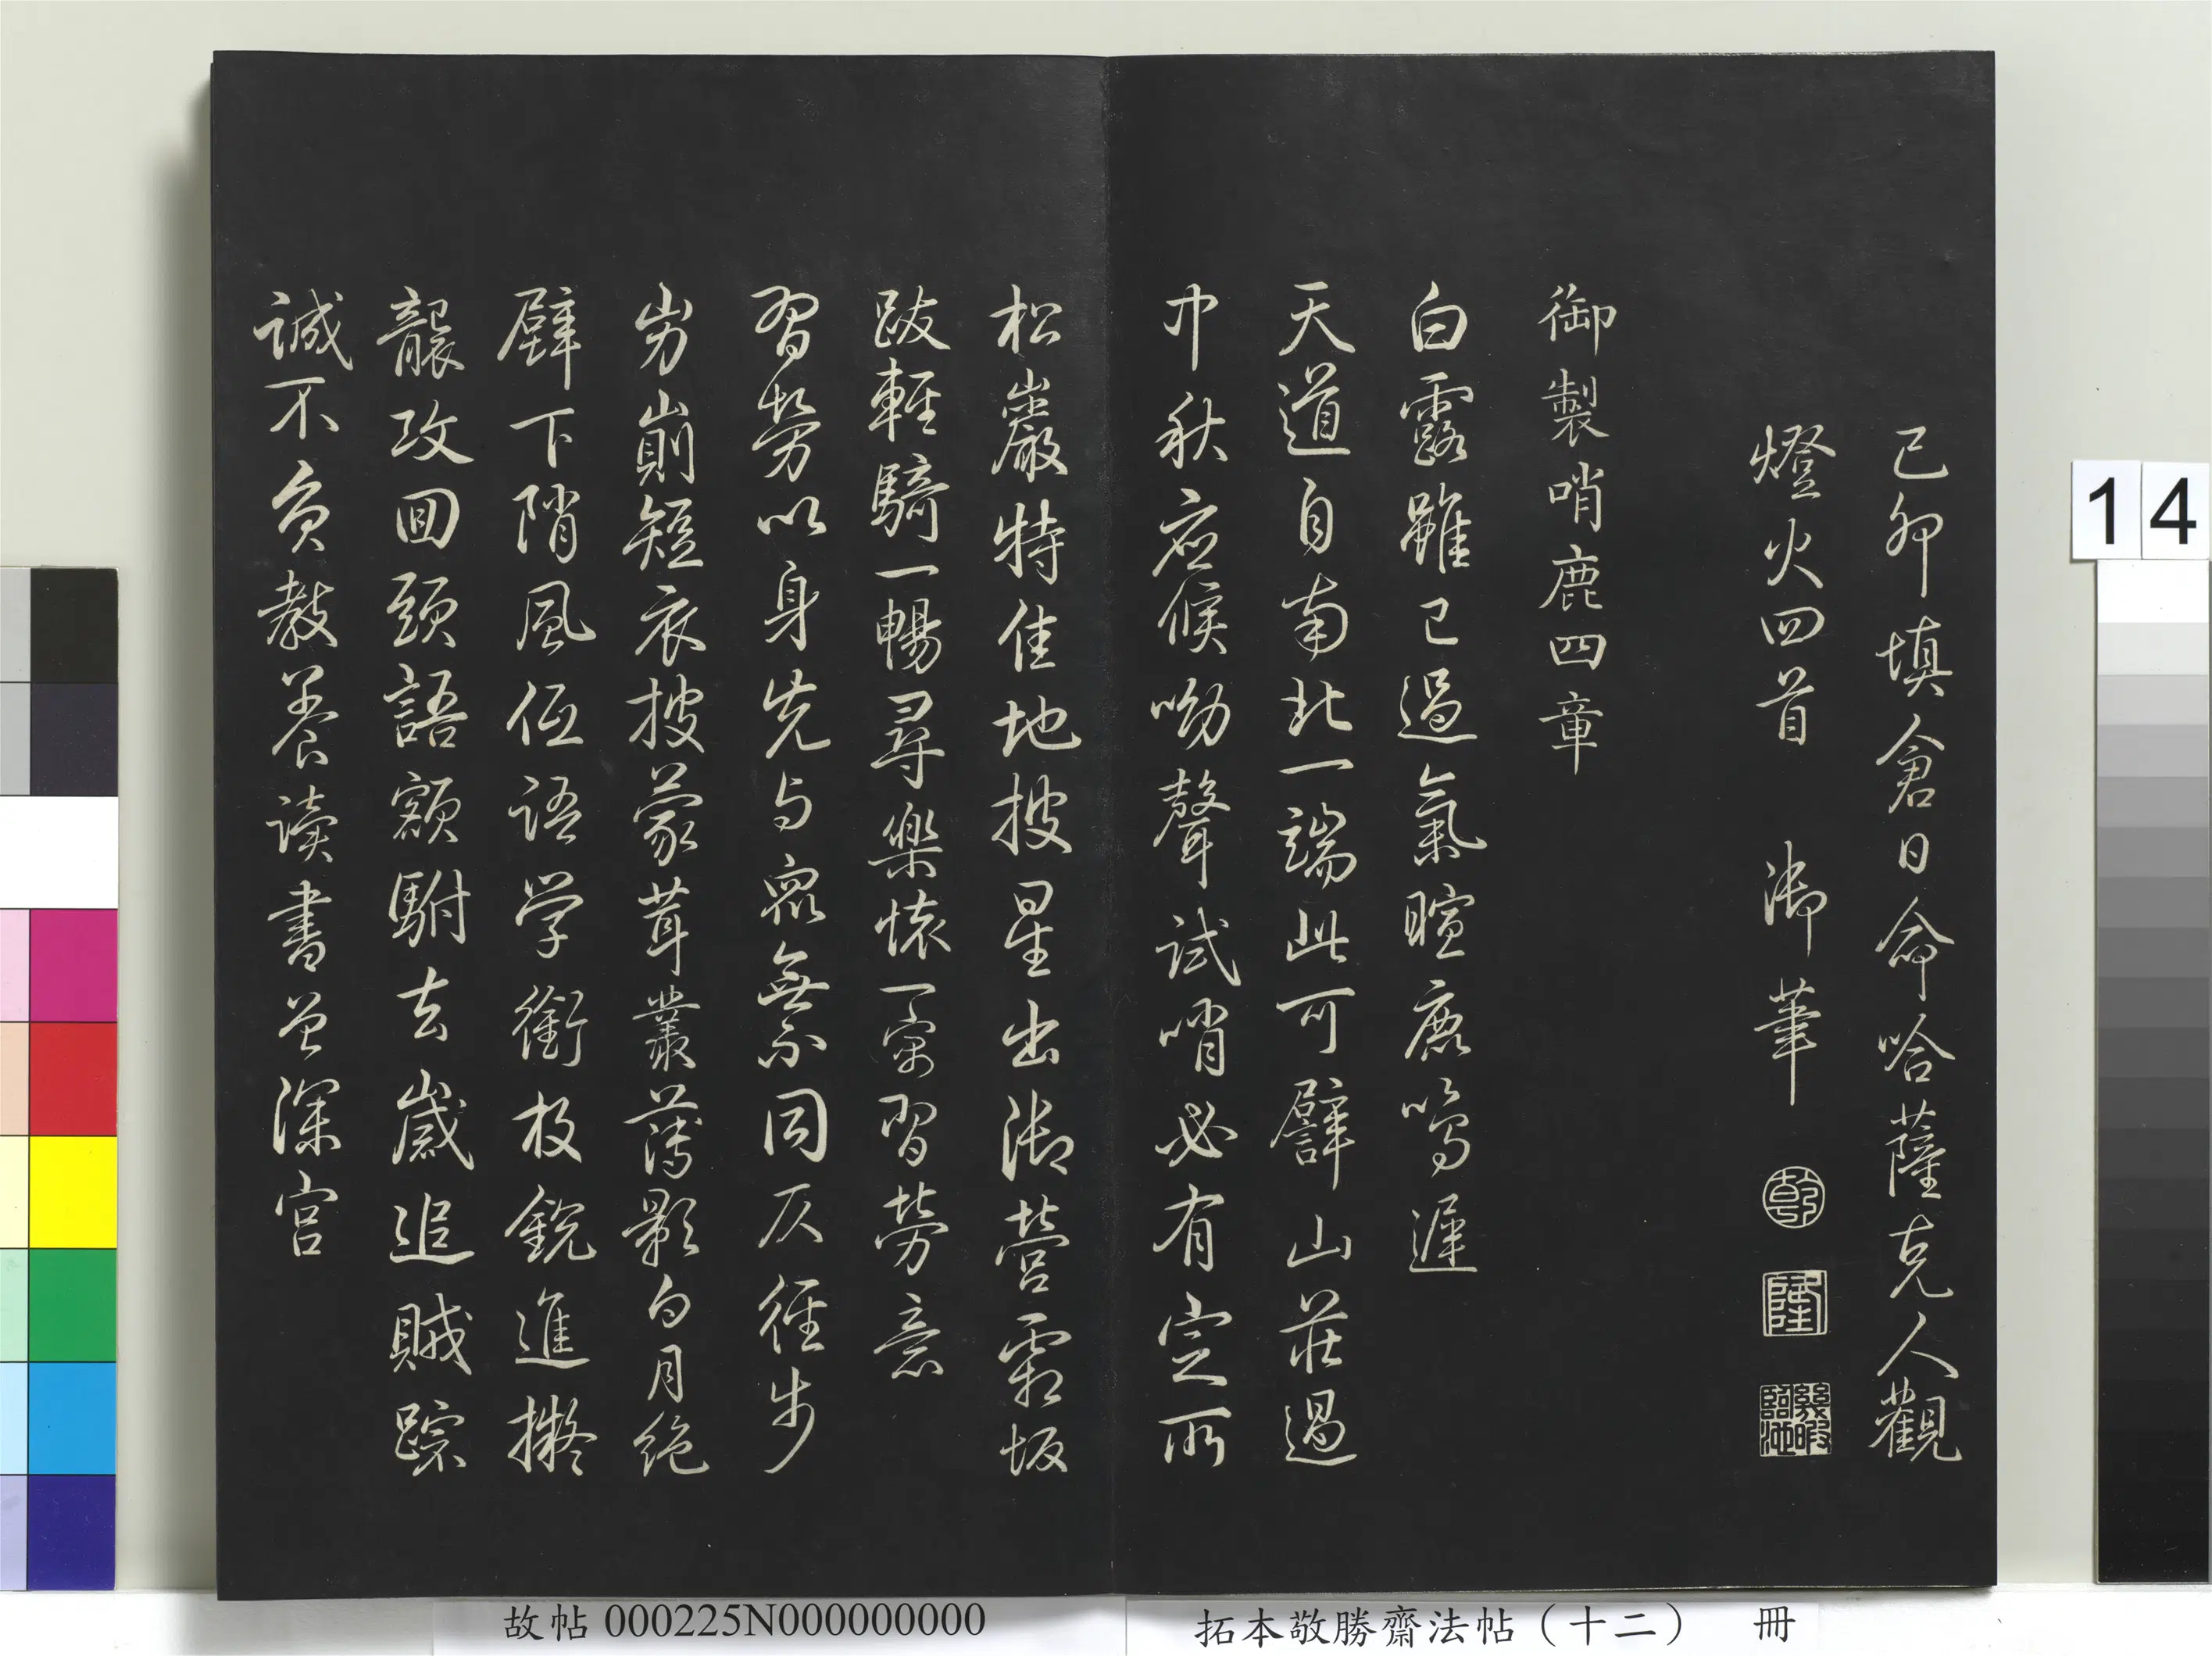 己卯填倉日命哈薩克人觀
燈火四首 御筆
乾
隆
幾暇臨池
御製哨鹿四章
白露雖已過氣暄鹿鳴遲
天道自南北一端此可譬山莊過
中秋应候呦聲試哨必有定所
松巖特佳地披星出御營霜坂
跋輕騎一暢尋樂懷一寓習勞意
習勞以身先与衆無不同仄徑步
屴崱短衣披蒙茸叢薄影白月絶
壁下陗風低語学銜枚銳進擬
襲攻回頭語額駙去歲追賊踪
誠不負教养读書曾深宮
14
故帖 000225N000000000
拓本敬勝齋法帖（十二） 冊